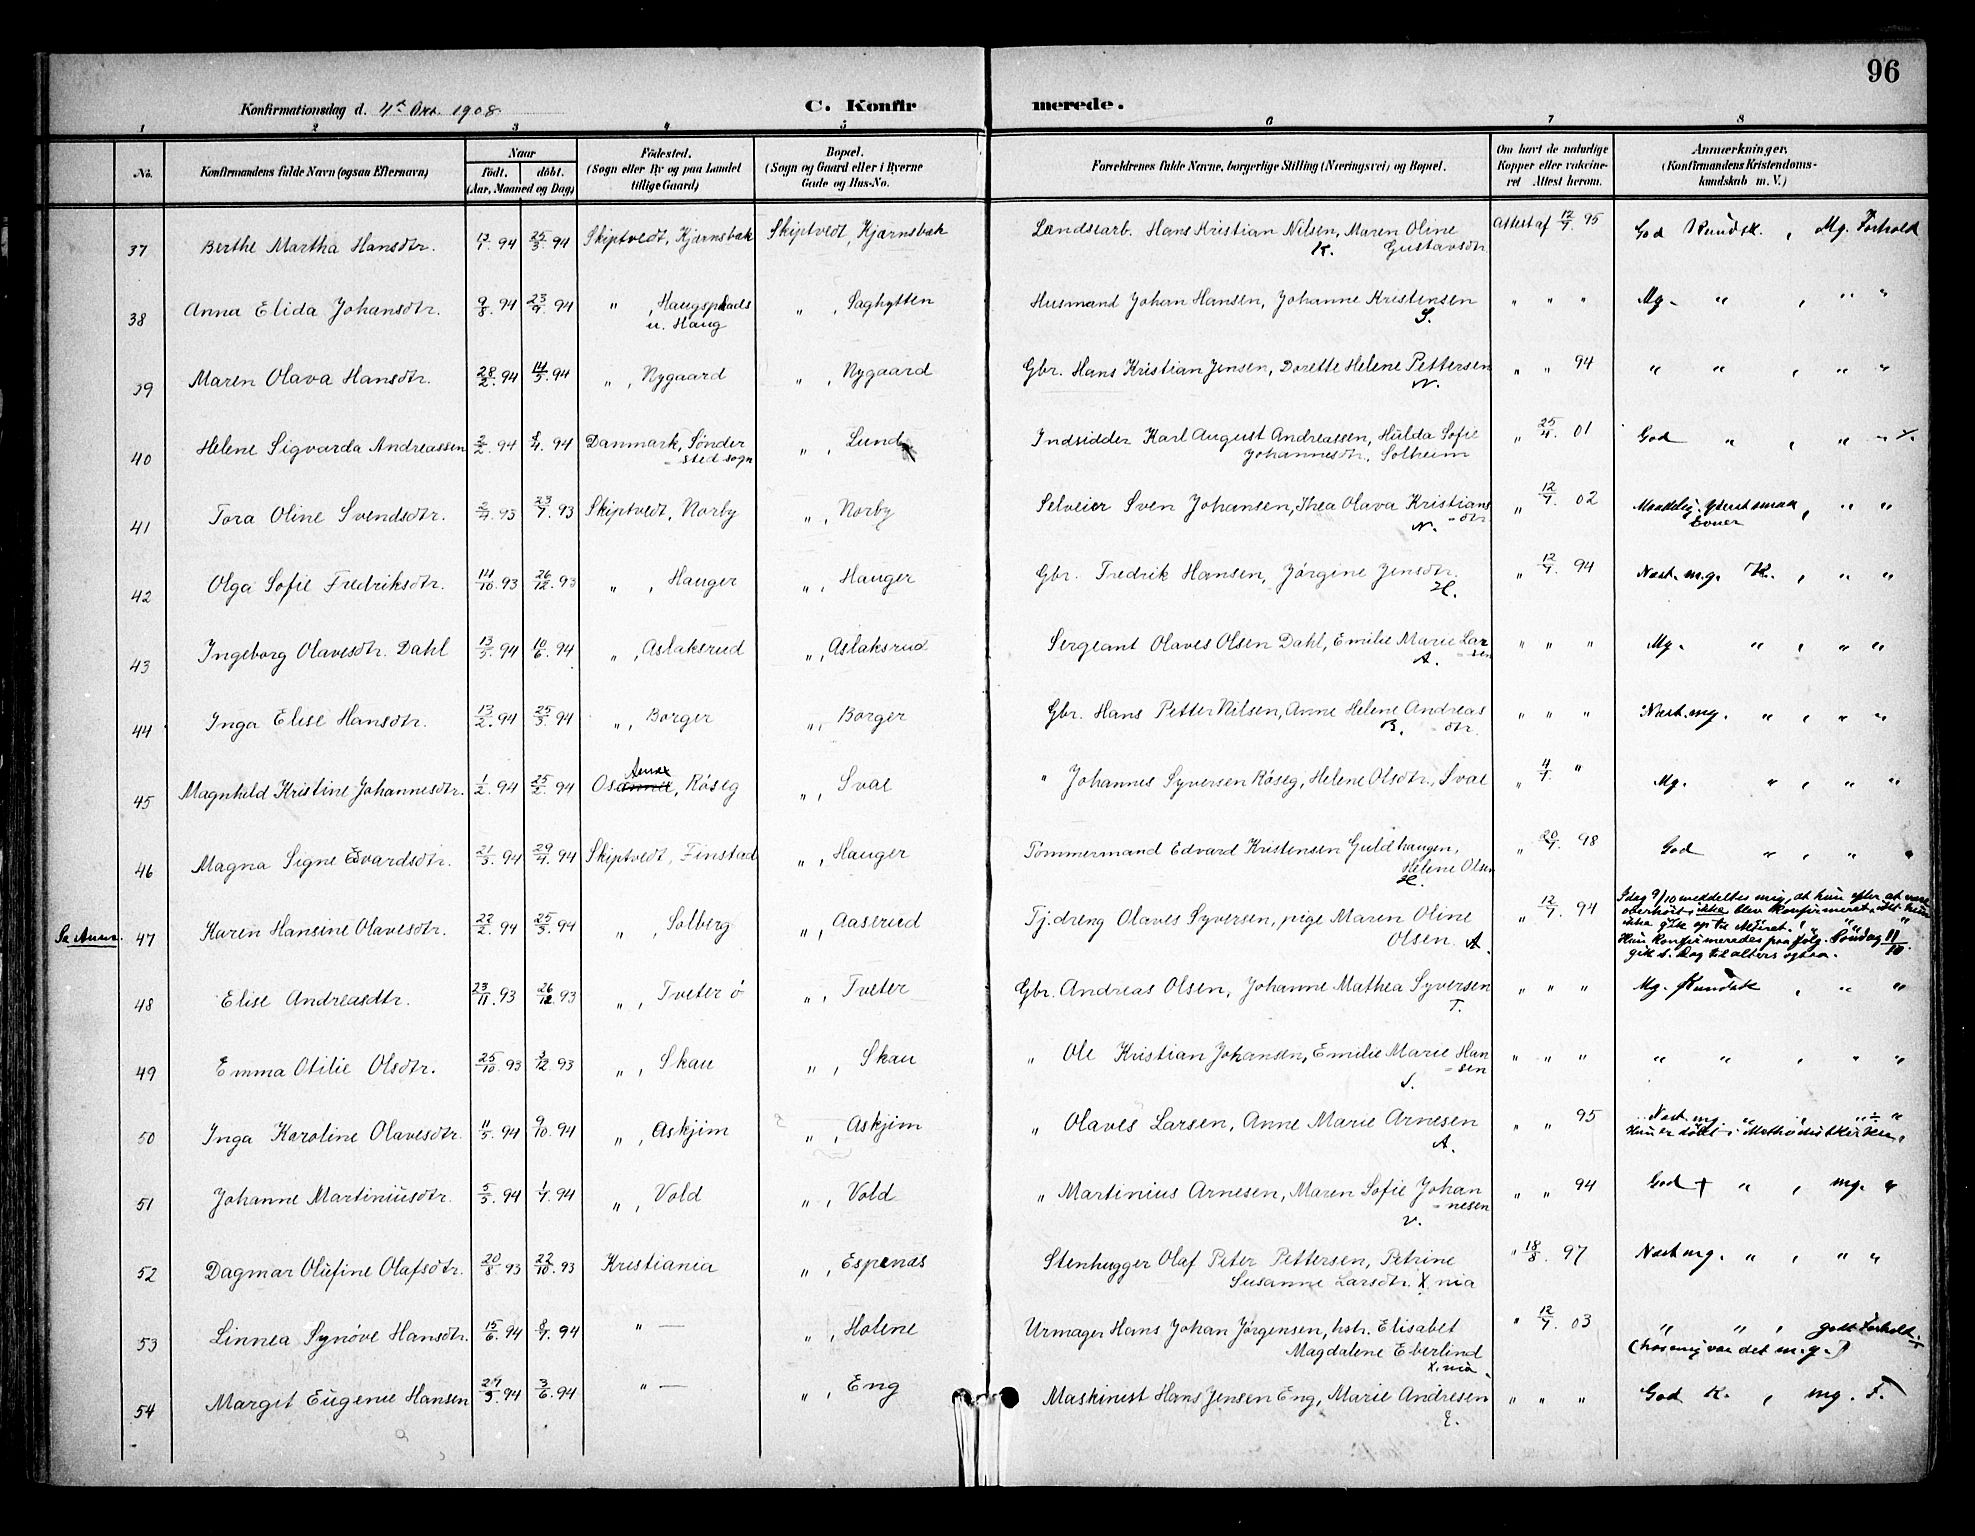 96
Konfirmationsdag d. 4de Okt. 1908.
C. Konfirmerede.
1 2 3 4 5 6 7 8
No.
Konfirmandens fulde Navn (ogsaa Efternavn)
Naar
födt. döbt.
(Aar, Maaned og Dag)
Födested.
(Sogn eller By og paa Landet
tillige Gaard)
Bopæl.
(Sogn og Gaard eller i Byerne
Gade og Hus-No.
Forældrenes fulde Navne, borgerlige Stilling (Næringsvei) og Bopæl.
Om havt de naturlige
Kopper eller vakcineret
Attest herom.
Anmærkninger.
(Konfirmandens Kristendomskundskab
m. V.)
37 Berthe Martha Hansdtr. 13/1. 94 25/3. 94 Skiptvedt, Kjærnsbæk Skiptvedt, Kjærnsbæk Landsearb. Hans Kristian Nilsen, Maren Oline Attest af 12/7. 95 God Kundsk. , Mg. Forhold
K. Gustavsdtr.
38 Anna Elida Johansdtr. 9/8. 94 23/9. 94 " , Haugsplads " , Saghytten Husmand Johan Hansen, Johanne Kristensen " " " Mg. " , " "
u. Haug S.
39 Maren Olava Hansdtr. 28/2. 94 14/5. 94 " , Nygaard " , Nygaard Gbr. Hans Kristian Jensen, Dorette Helene Pettersen " " 94 " " , " "
N.
40 Helene Sigvarda Andreassen 2/2. 94 8/4. 94 Danmark, Sønder " , Lund Indsidder Karl August Andreassen, Hulda Sofie " 25/4. 01 God " , " "
=sted sogn Johannesdtr. Solheim
41 Tora Oline Svendsdtr. 2/7. 93 23/7. 93 Skiptvedt, Norby " , Norby Selveier Sven Johansen, Thea Olava Kristians " 12/7. 02 Maadelig. Yderst smaa , " "
=dtr. Evner
N.
42 Olga Sofie Fredriksdtr. 14/10. 93 26/12. 93 " , Hauger " , Hauger Gbr. Fredrik Hansen, Jörgine Jensdtr. " 12/7. 94 Næst. m.g. K. , " "
H.
43 Ingeborg Olavesdtr. Dahl 13/5. 94 10/6. 94 " , Aslaksrud " , Aslaksrud Sergeant Olaves Olsen Dahl, Emilie Marie Lar " " " Mg. " , " "
A. =sen
44 Inga Elise Hansdtr. 13/2. 94 25/3. 94 " , Borger " , Borger Gbr. Hans Petter Nilsen, Anne Helene Andreas " " " Næst. mg. " , " "
B. =dtr.
45 Magnhild Kristine Johannesdtr. 1/2. 94 25/2. 94 Os , Röseg " , Svae " Johannes Syversen Röseg, Helene Olsdtr., Svae " 4/7. " Mg. " , " "
46 Magna Signe Edvardsdtr. 21/3. 94 29/4. 94 Skiptvedt, Finstad " , Hauger Tömmermand Edvard Kristensen Guldhaugen, " 20/7. 98 God " , " "
Helene Olsen
H.
Se Anm. 47 Karen Hansine Olavesdtr. 22/2. 94 25/3. 94 " , Solberg " , Aaserud Tj.dreng Olaves Syversen, pige Maren Oline " 12/7. 94 Idag 9/10 meddeltes mig, at hun efter at være
Olsen. A. overhört, ikke blev konfirmeret, idet hun
ikke gik op til Alteret. " "
Hun konfirmeredes paa fölg. Söndag 11/10.
gik s. Dag til alters ogsaa.
48 Elise Andreasdtr. 23/11. 93 26/12. 93 " , Tveter ö " , Tveter Gbr. Andreas Olsen, Johanne Mathea Syversen " " " Mg. Kundsk , " "
T.
49 Emma Otilie Olsdtr. 25/10. 93 3/12. 93 " , Skau " , Skau " Ole Kristian Johansen, Emilie Marie Han " " " " " , " "
S. =sen
50 Inga Karoline Olavesdtr. 11/5. 94 9/10. 94 " , Askjim " , Askjim " Olaves Larsen, Anne Marie Arnesen " " 95 Næst. mg. " , " "
A. Hun er döbt i Methodistkirken.
51 Johanne Martiniusdtr. 5/5. 94 1/7. 94 " , Vold " , Vold " Martinius Arnesen, Maren Sofie Johan " " 94 God + " , mg. "
V. =nesen
52 Dagmar Olufine Olafsdtr. 20/8. 93 22/10. 93 Kristiania " , Espenæs Stenhugger Olaf Peter Pettersen, Petrine " 18/8. 97 Næst mg. " , " "
Susanne Larsdtr. X.nia
53 Linnea Synöve Hansdtr. 15/6. 94 8/7. 94 " — " , Holene Urmager Hans Johan Jörgensen, hstr. Elisabet " 12/7. 03 " " , godt Forhold.
Magdalene Eberlind (hos mig var det m.g.)
X.nia.
54 Margit Eugenie Hansen 27/3. 94 3/6. 94 " — " , Eng Maskinist Hans Jensen Eng, Marie Andresen " " " God K. , mg. F.
E.